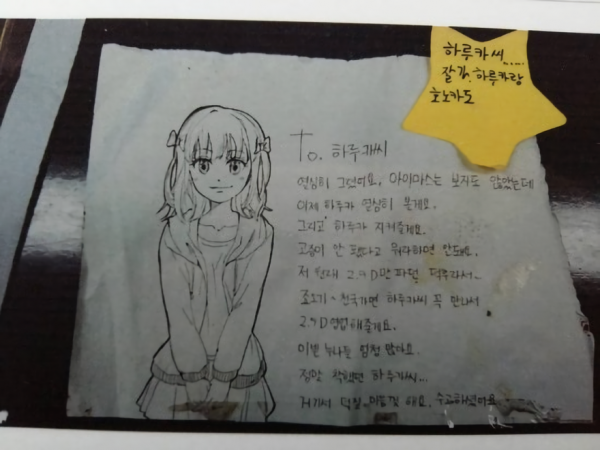 하루카씨......
잘가. 하루카랑
호노카도
To. 하루카씨
열심히 그렸어요, 아이마스는 보지도 않았는데
이제 하루카 열심히 볼게요.
그리고 하루카 지켜줄게요.
고퀄이 안 됐다고 뭐라하면 안돼요.
저 원래 2.9D만 파던 덕후라서..
천국가면 하루카씨 꼭 만나서
2.9D 영업해줄게요.
이쁜 누나들 엄청 많아요.
정말 착했던 하루카씨...
거기서 덕질 해요. 수고하셨어요